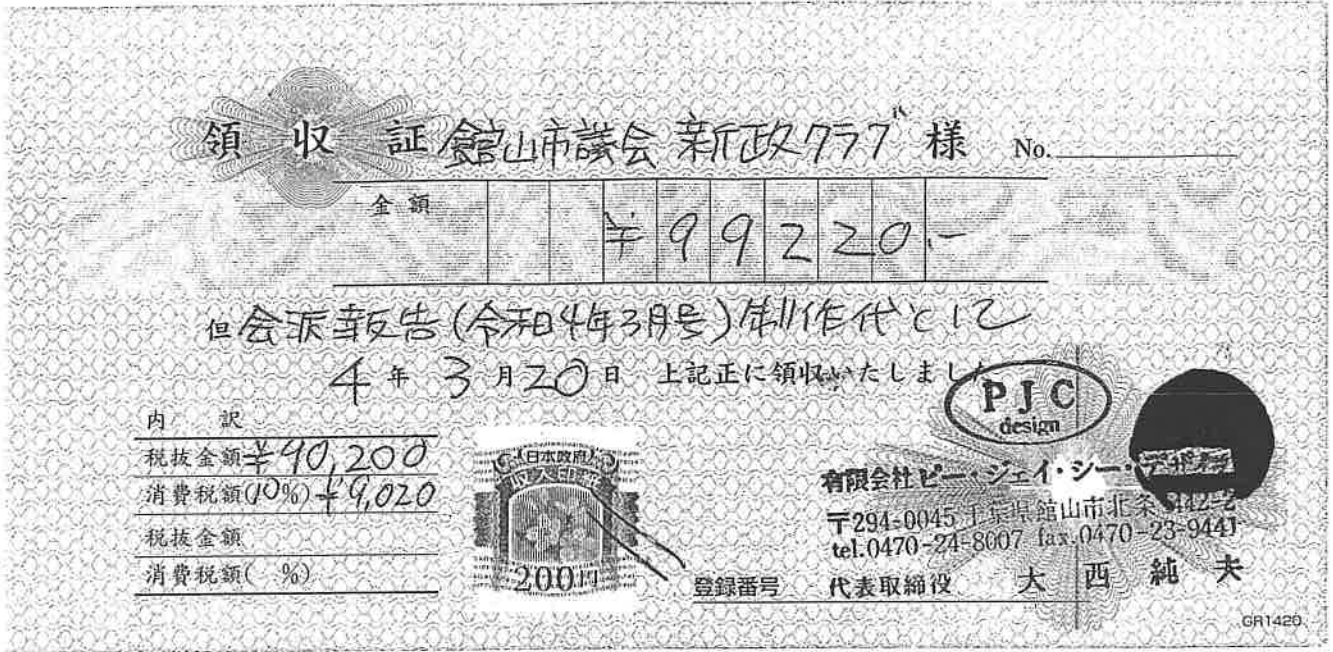 領収証 館山市議会 新政クラブ 様 No.
金額 ¥99220.-
但 会派報告(令和4年3月号)制作代として
4年3月20日 上記正に領収いたしました
PJC
design
内訳
税抜金額 ¥90,200
消費税額(10%) ¥9,020
税抜金額
消費税額( %)
日本政府
収入印紙
200円
有限会社ピー・ジェイ・シー・デザイン
〒294-0045 千葉県館山市北条 442-2
tel.0470-24-8007 fax.0470-23-9441
登録番号 代表取締役 大西純夫
GR1420